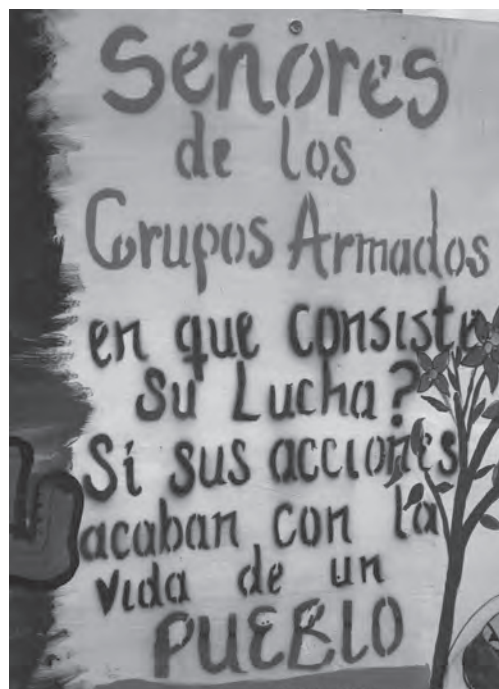 Señores
de los
Grupos Armados
en que consiste
su Lucha?
Si sus acciones
acaban con la
vida de un
PUEBLO